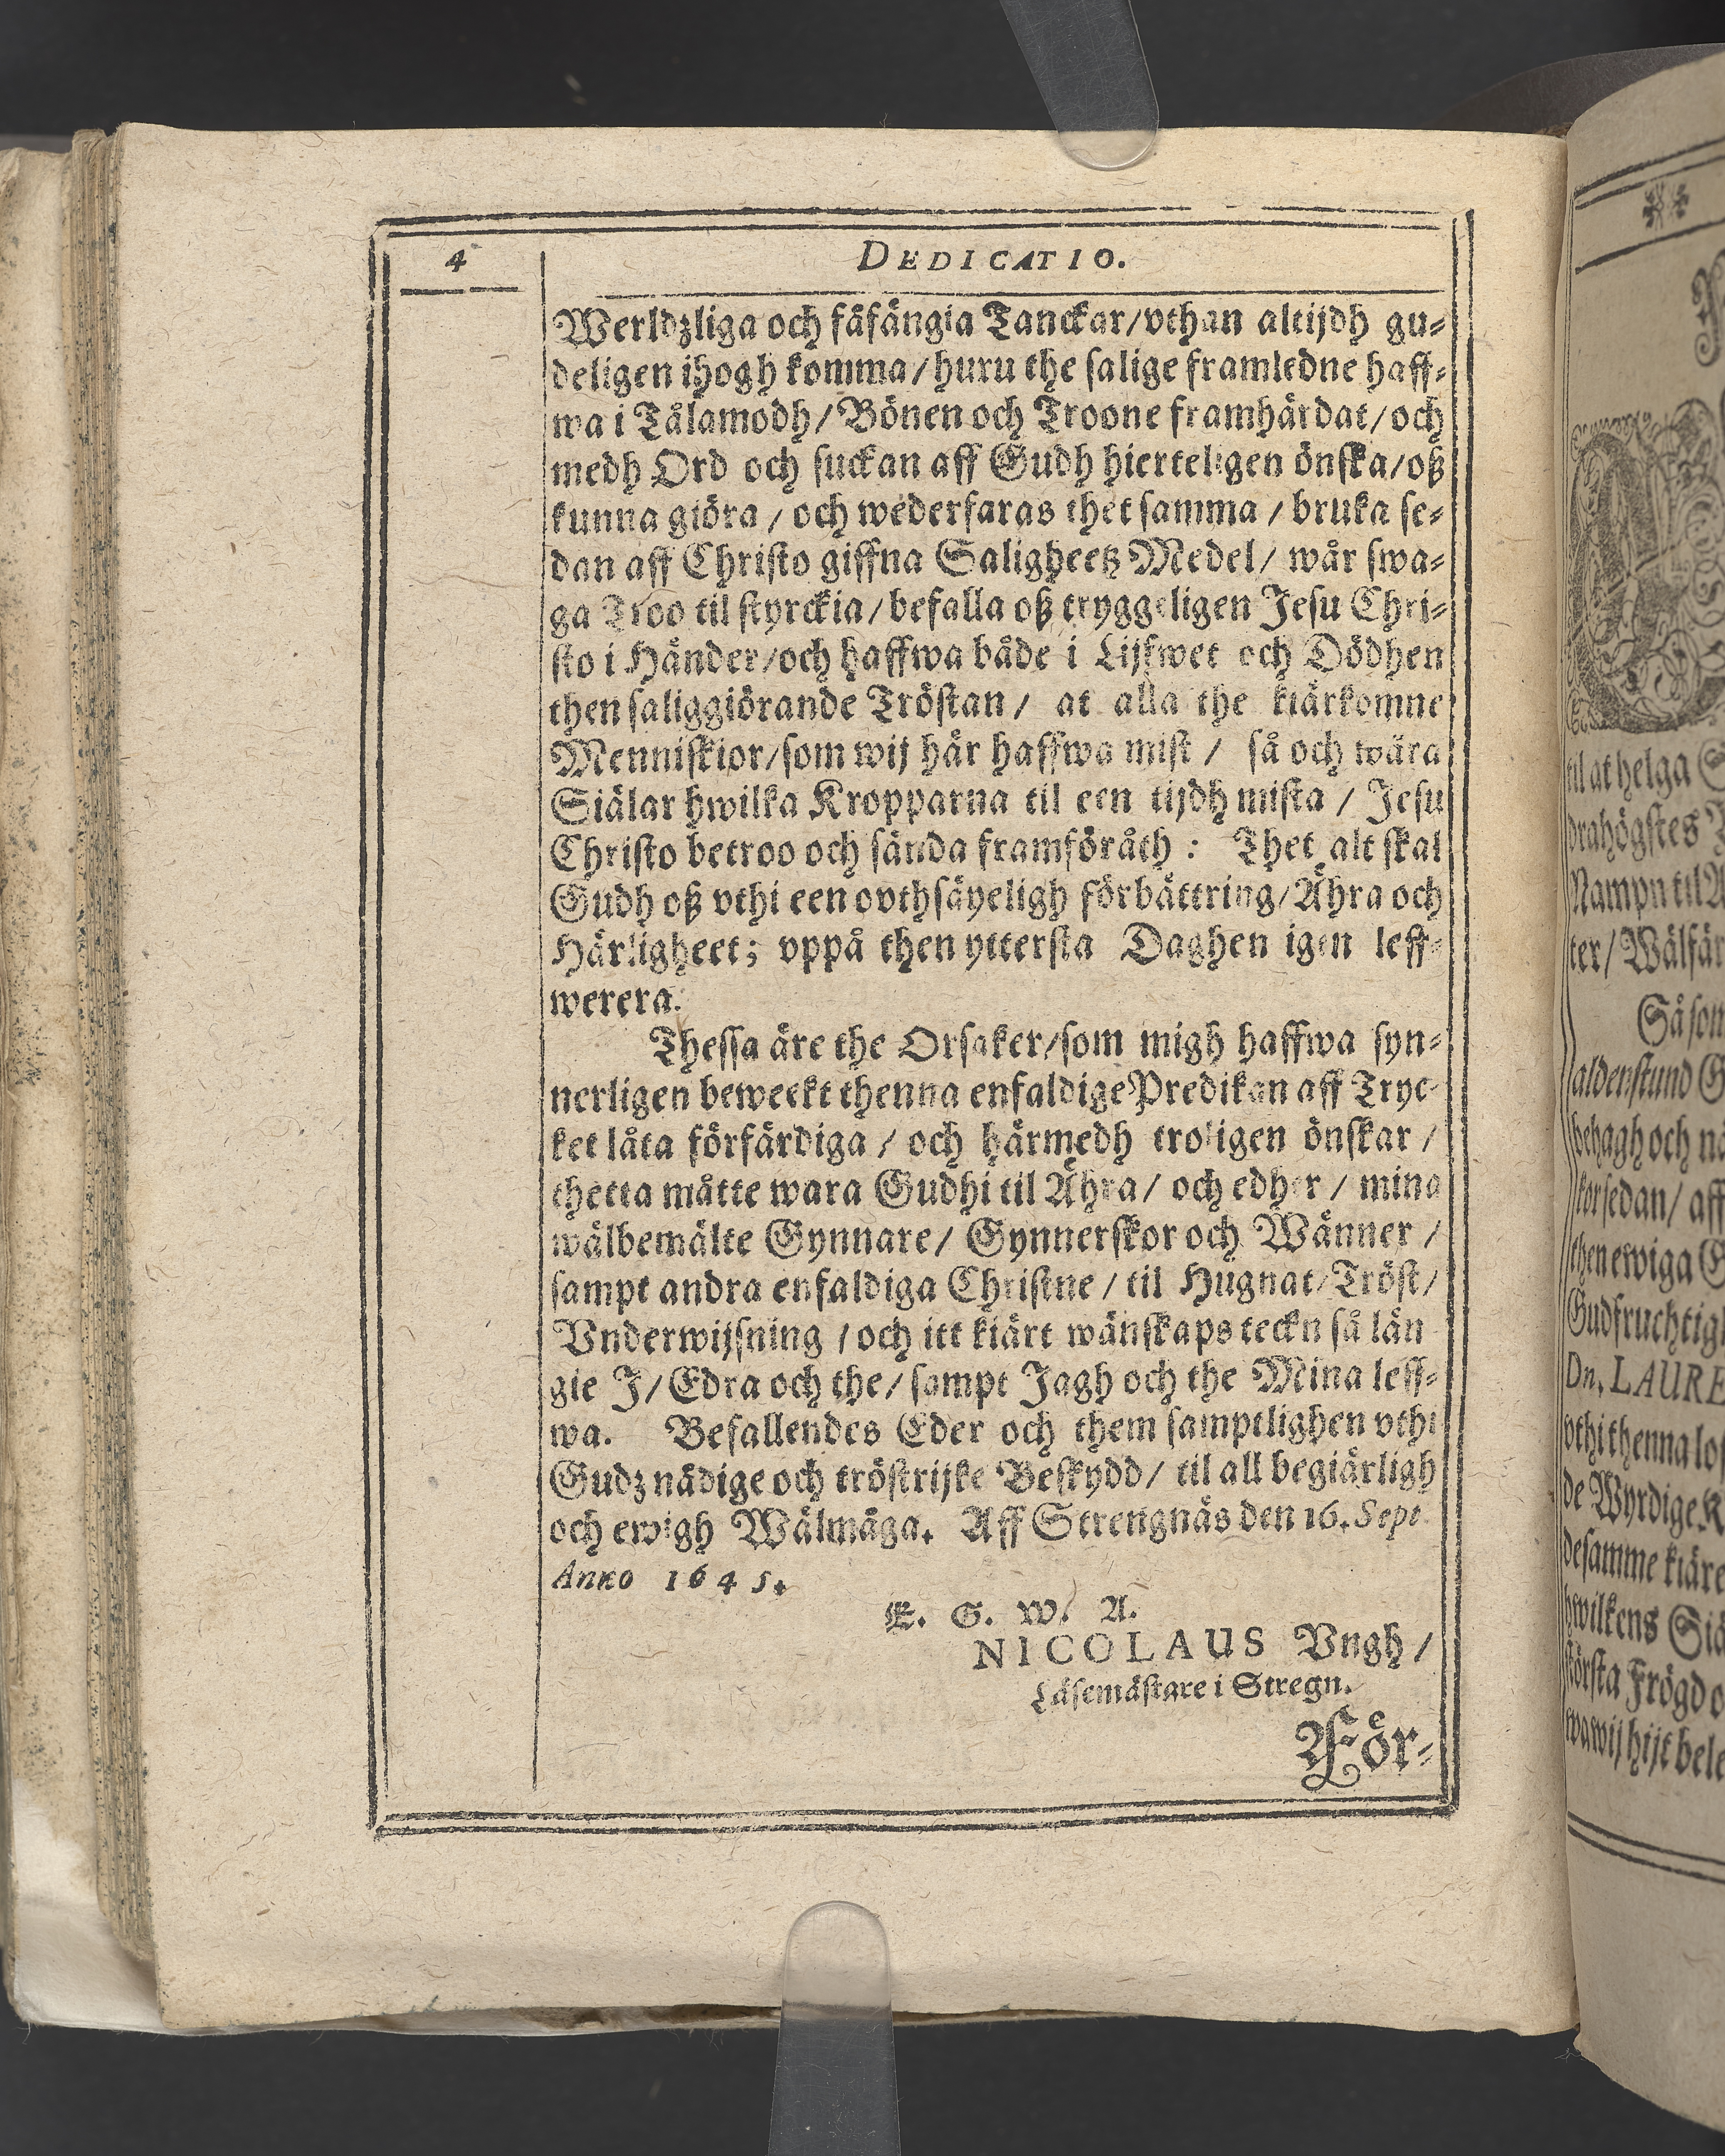 4
DEDICATIO.
Werldzliga och fåfängia Tanckar/vthan altijdh gu⸗
deligen ihogh komma/huru the salige framledne haff⸗
wa i Tålamodh/Bönen och Troone framhärdat/och
medh Ord och suckan aff Gudh hierteligen önska/oß
kunna giöra/och wederfaras thet samma/bruka se⸗
dan aff Christo giffna Saligheetz Medel/wår swa⸗
ga Troo til styrckia/befalla oß tryggeligen Jesu Chri⸗
sto i Händer/och haffwa både i Lijffwet och Dödhen
then saliggiörande Tröstan/at alla the kiärkomne
Menniskior/som wij här haffwa mist/så och wåra
Siälar hwilka Kropparna til een tijdh mista/Jesu
Christo betroo och sända framföråth: Thet alt skal
Gudh oß vthi een ovthsäyeligh förbättring/Ähra och
Härligheet; vppå then yttersta Daghen igen leff⸗
werera.
Thessa äre the Orsaker/som migh haffwa syn⸗
nerligen beweekt thenna enfaldige Predikan aff Tryc⸗
ket låta förfärdiga/och härmedh troligen önskar/
thetta måtte wara Gudhi til Ähra/och edher/mina
wälbemälte Gynnare/Gynnerskor och Wänner/
sampt andra enfaldiga Christne/til Hugnat/Tröst/
Vnderwijsning/och itt kiärt wänskaps teckn så län
gie J/Edra och the/sampt Jagh och the Mina leff⸗
wa. Befallendes Eder och them samptlighen vthi
Gudz nädige och tröstrijke Beskydd/til all begiärligh
och ewigh Wälmåga. Aff Strengnäs den 16. Sept.
Anno 1645.
E. G. W. A.
NICOLAUS Vngh/
Läsemästare i Stregn.
För⸗
til at helga
drahögstes
Nampn til
ter/Wälfär
Så som
aldenstund
behagh och
sedan/aff
then ewiga
Gudfruchtigh
Dn. LAURE
vthi thenna
de Wyrdige
desamme kiäre
hwilkens Siä
största Frögd
wa wij hijt bele